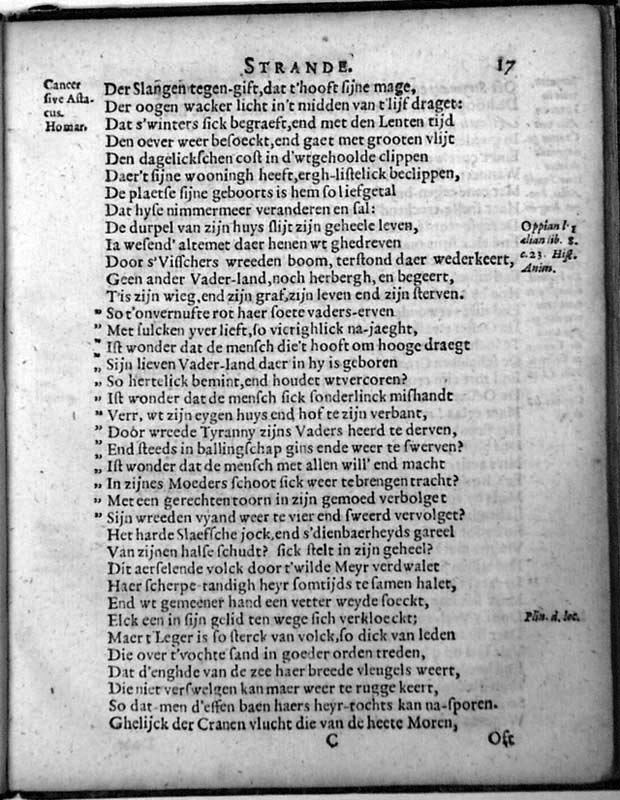 STRANDE.
17
Cancer
sive Asta-
cus.
Homar.
Der Slangen tegen-gift, dat t'hooft sijne mage,
Der oogen wacker licht in't midden van t'lijf draget:
Dat s'winters sick begraeft, end met den Lenten tijd
Den oever weer besoeckt, end gaet met grooten vlijt
Den dagelickschen cost in d'wtgehoolde clippen
Daer't sijne wooningh heeft, ergh-listelick beclippen,
De plaetse sijne geboorts is hem so liefgetal
Dat hyse nimmermeer veranderen en sal:
De durpel van zijn huys slijt zijn geheele leven,
Ia wesend' altemet daer henen wt ghedreven
Door s'Visschers wreeden boom, terstond daer wederkeert,
Geen ander Vader-land, noch herbergh, en begeert,
T'is zijn wieg, end zijn graf, zijn leven end zijn sterven.
Oppian l. 1
ælian lib. 8.
c. 23. Hist.
Anim.
" So t'onvernufte rot haer soete vaders-erven
" Met sulcken yver lieft, so vierighlick na-jaeght,
" Ist wonder dat de mensch die't hooft om hooge draegt
" Sijn lieven Vader-land daer in hy is geboren
" So hertelick bemint, end houdet wtvercoren?
" Ist wonder dat de mensch sick sonderlinck mishandt
" Verr, wt zijn eygen huys end hof te zijn verbant,
" Door wreede Tyranny zijns Vaders heerd te derven,
" End steeds in ballingschap gins ende weer te swerven?
" Ist wonder dat de mensch met allen will' end macht
" In zijnes Moeders schoot sick weer te brengen tracht?
" Met een gerechten toorn in zijn gemoed verbolget
" Sijn wreeden vyand weer te vier end sweerd vervolget?
Het harde Slaefsche jock, end s'dienbaerheyds gareel
Van zijnen halse schudt? sick stelt in zijn geheel?
Dit aerselende volck door t'wilde Meyr verdwalet
Haer scherpe-tandigh heyr somtijds te samen halet,
End wt gemeener hand een vetter weyde soeckt,
Elck een in sijn gelid ten wege sich verkloeckt;
Plin. d. loc.
Maer t Leger is so sterck van volck, so dick van leden
Die over t'vochte sand in goeder orden treden,
Dat d'enghde van de zee haer breede vleugels weert,
Die niet verswelgen kan maer weer te rugge keert,
So dat men d'effen baen haers heyr-tochts kan na-sporen.
Ghelijck der Cranen vlucht die van de heete Moren,
C
Oft